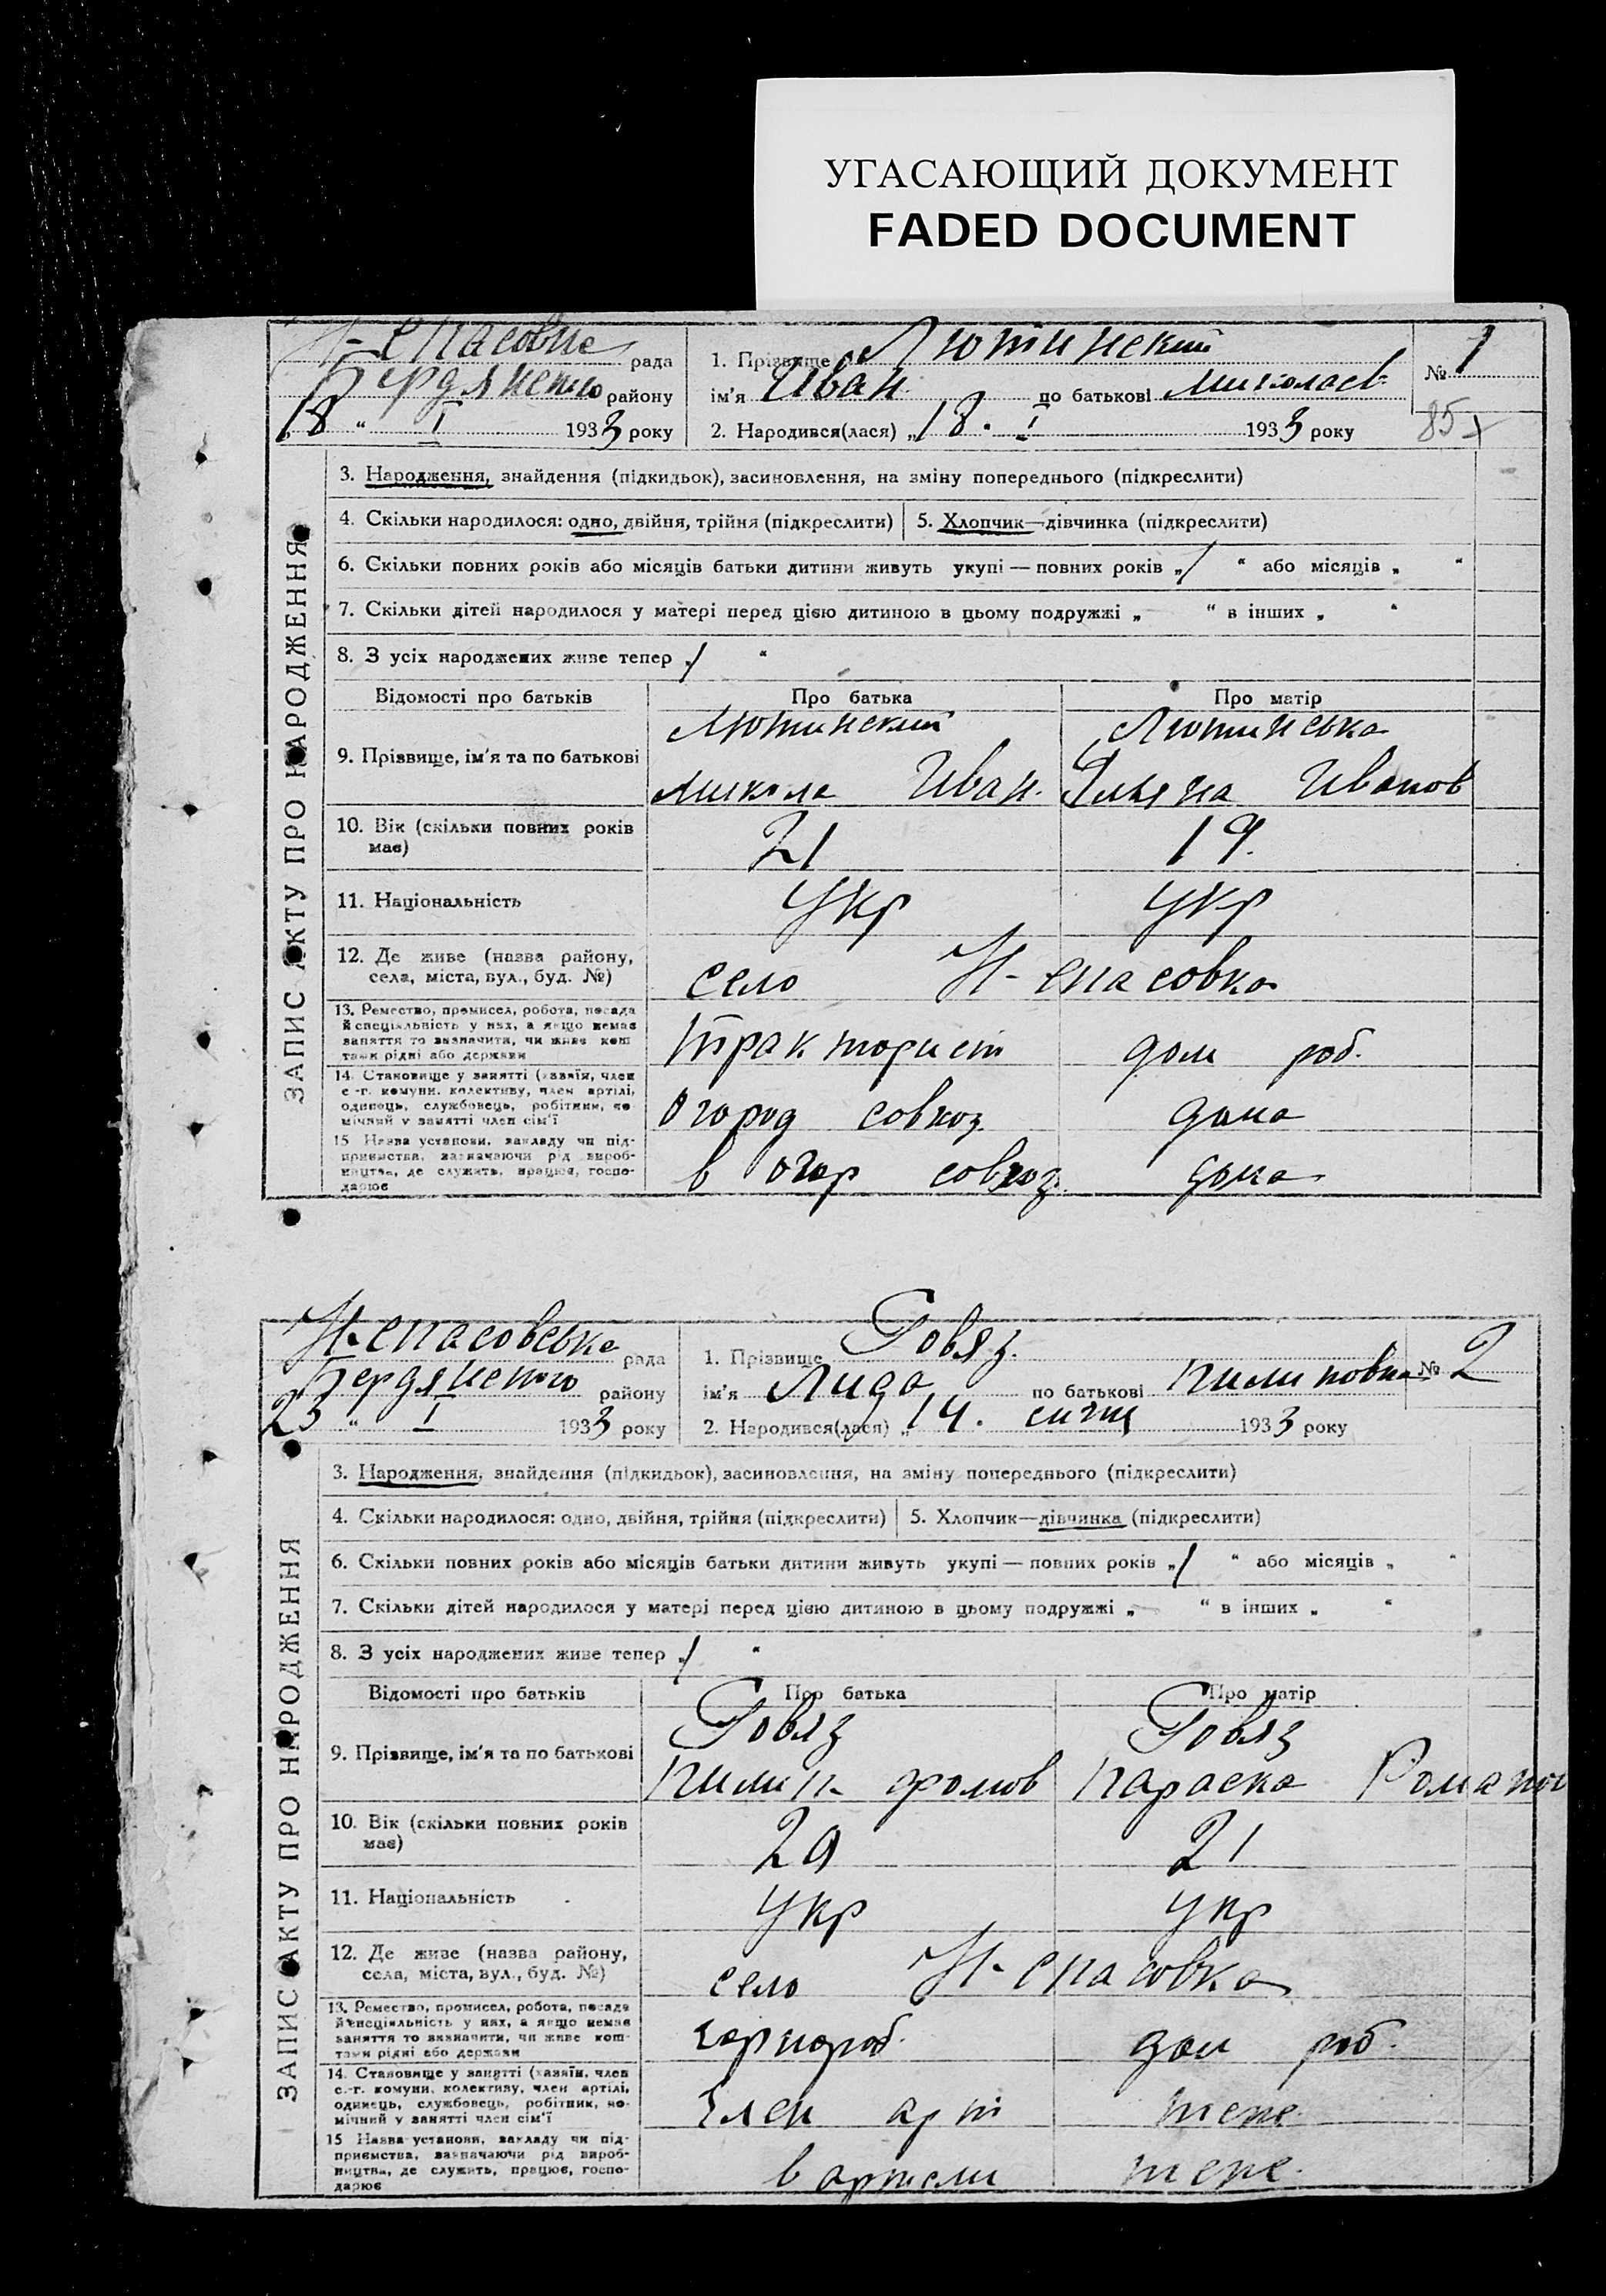 УГАСАЮЩИЙ ДОКУМЕНТ
FADED DOCUMENT
Н-Спасовка рада
Бердянского району
„18 “ I 1933 року
1. Прізвище Лютинский
ім'я Иван по батькові Миколаєв
2. Народився(лася) „18. I 1933 року
№ 1
85
ЗАПИС АКТУ ПРО НАРОДЖЕННЯ
3. Народження, знайдення (підкидьок), засиновлення, на зміну попереднього (підкреслити)
4. Скільки народилося: одно, двійня, трійня (підкреслити) 5. Хлопчик—дівчинка (підкреслити)
6. Скільки повних років або місяців батьки дитини живуть укупі — повних років „1 “ або місяців „ “
7. Скільки дітей народилося у матері перед цією дитиною в цьому подружжі „ “ в інших „ “
8. З усіх народжених живе тепер „1 “
Відомості про батьків Про батька Про матір
9. Прізвище, ім'я та по батькові
Лютинский Лютинська
Микола Иван. Ульяна Иванов
10. Вік (скільки повних років має) 21 19.
11. Національність Укр Укр
12. Де живе (назва району, села, міста, вул., буд. №) село Н-Спасовка
13. Ремество, промисел, робота, посада
й спеціяльність у них, а якщо немає
заняття то визначити, чи живе кош
тами рідні або держави
Тракторист дом роб.
14. Становище у занятті (хазяїн, член
с.-г. комуни, колективу, член артілі,
одинець, службовець, робітник, по-
мічний у занятті член сім'ї
Огород совхоз дома
15 Назва установи, закладу чи під-
приємства, зазначаючи рід вироб-
ництва, де служить, працює, госпо-
дарює
в огор совхоз. дома
Н-Спасовська рада
Бердянского району
23 “ I 1933 року
1. Прізвище Говяз.
ім'я Лида по батькові Пилиповна
2. Народився(лася) „14. сичня 1933 року
№ 2
ЗАПИС АКТУ ПРО НАРОДЖЕННЯ
3. Народження, знайдення (підкидьок), засиновлення, на зміну попереднього (підкреслити)
4. Скільки народилося: одно, двійня, трійня (підкреслити) 5. Хлопчик—дівчинка (підкреслити)
6. Скільки повних років або місяців батьки дитини живуть укупі — повних років „1 “ або місяців „ “
7. Скільки дітей народилося у матері перед цією дитиною в цьому подружжі „— “ в інших „ “
8. З усіх народжених живе тепер „1 “
Відомості про батьків Про батька Про матір
9. Прізвище, ім'я та по батькові
Говяз Говяз
Пилип Фомов Параска Романов
10. Вік (скільки повних років має) 29 21
11. Національність Укр Укр
12. Де живе (назва району, села, міста, вул., буд. №) село Н-Спасовка
13. Ремество, промисел, робота, посада
й спеціяльність у них, а якщо немає
заняття то визначити, чи живе кош-
тами рідні або держави
Чорнороб. дом роб.
14. Становище у занятті (хазяїн, член
с.-г. комуни, колективу, член артілі,
одинець, службовець, робітник, по-
мічний у занятті член сім'ї
Член арт теже
15 Назва установи, закладу чи під-
приємства, зазначаючи рід вироб-
ництва, де служить, працює, госпо-
дарює
в артели теже.